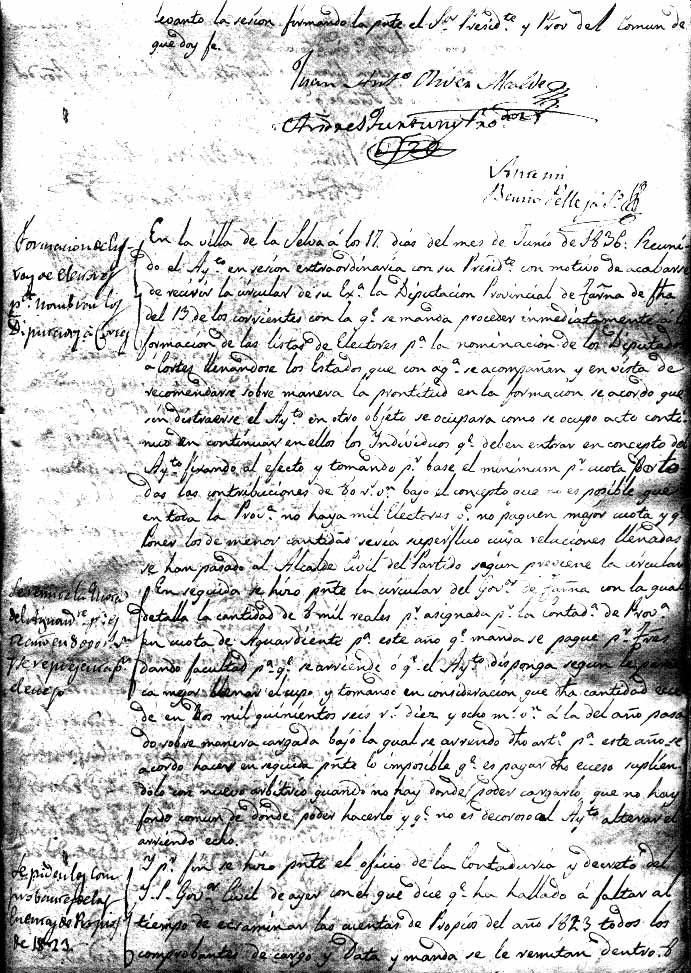 levanto la sesion firmando la pnte el Sor Presidte y Pror del Comun de
que doy fe.
Juan Anto Oliver Alcalde
Andres
Benito
Formacion de
de Electores
pa nombrar los
Diputados á Cortes
En la villa de la Selva á los 17 dias del mes de Junio de 1836: Reuni
do el Ayto en sesion extraordinaria con su Presidte con motivo de acabarse
de recivir la circular de su Exa la Diputacion Provincial de Tarrna de fha
del 13 de los corrientes con la qe se manda proceder inmediatamente a la
formacion de las listas de Electores pa la nominacion de los Diputados
a Cortes llenandose los Estados que con aqa se acompañan y en vista de
recomendarse sobre manera la prontitud en la formacion se acordo que
sin distraerse el Ayto en otro objeto se ocupara como se ocupo acto conti
nuo en continuar en ellos los Individuos qe deben entrar en concepto del
Ayto al efecto y tomando pr base el minimum pr cuota por to
das las contribuciones de rs vn bajo el concepto que no es posible que
en toda la Prova no haya mil Electores qe no paguen major cuota y qe
poner los de menor cantidad seria superfluo cuya relaciones llenadas
se han pasado al Alcalde Civil del Partido segun previene la circular
En seguida se hizo pnte la circular del Govor de Tarrna con la qual
detalla la cantidad de 8 mil reales pr asignada pr la Contada de Prova
en cuota de Aguardiente pa este año qe manda se pague pr
dando facultad pa qe se arriende o qe el Ayto disponga segun le paresca
ca mejor llenar el cupo, y tomando en consideracion que dha cantidad exce
de en dos mil quinientos seis rs diez y ocho ms vn á la del año pasa
do sobre manera cargada bajo la qual se arrendo dho arto pa este año se
acordo hacer en seguida pnte lo imposible qe es pagar dho exceso suplien
dolo con nuevo arbitrio quando no hay donde poder cargarlo, que no hay
fondo comun de donde poder hacerlo y qe no es decoroso al Ayto alterar el
arriendo echo.
Se piden los com
probantes de las
Cuentas de Propios
de 1823.
Y pr fin se hizo pnte el oficio de la Contaduria y decreto del
Y.S. Govor Civil de ayer con el que dice qe ha hallado á faltar al
tiempo de ecsaminar las cuentas de Propios del año 1823 todos los
comprobantes de cargo y Data y manda se le remitan dentro 8